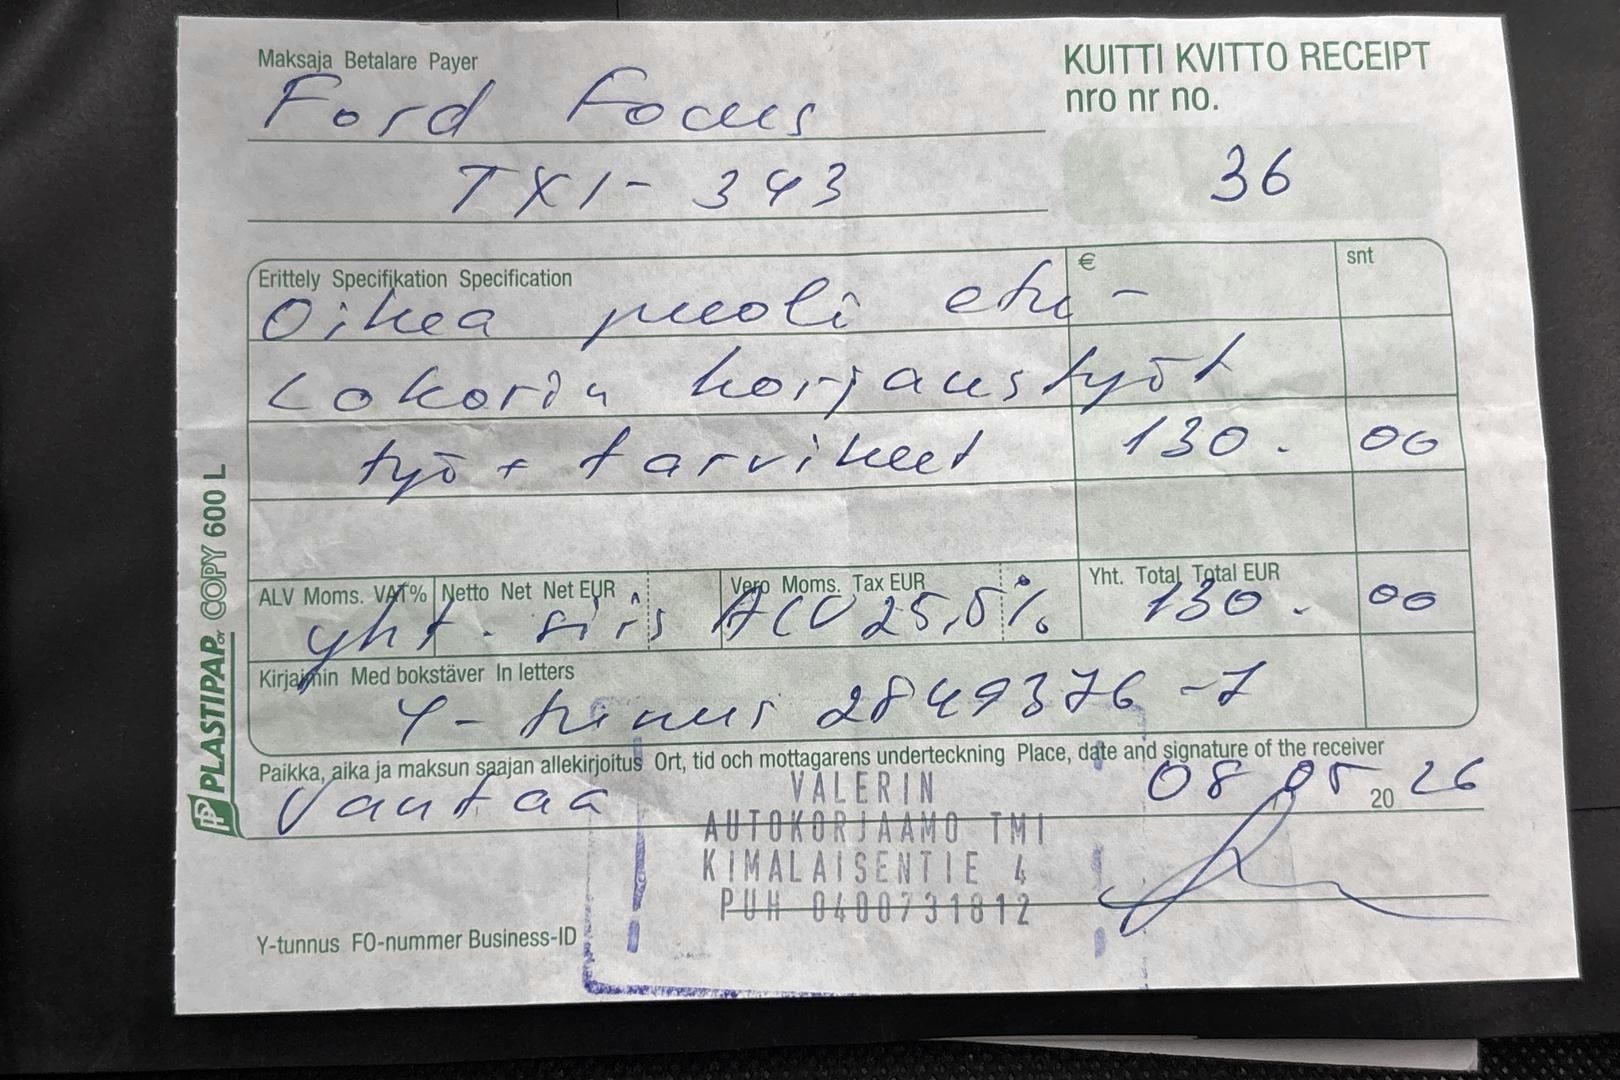 Maksaja Betalare Payer
Ford Focus
TXI-343
KUITTI KVITTO RECEIPT
nro nr no.
36
Erittely Specifikation Specification
€
snt
Oikea puoli etu-
Lokarin korjaustyöt
työ + tarvikeet 130. 00
ALV Moms. VAT% Netto Net Net EUR Vero Moms. Tax EUR Yht. Total Total EUR
yht. sis ALV 25,5% 130. 00
Kirjaimin Med bokstäver In letters
Y-tunnus 2849376-7
Paikka, aika ja maksun saajan allekirjoitus Ort, tid och mottagarens underteckning Place, date and signature of the receiver
Vantaa 08 05 20 26
VALERIN
AUTOKORJAAMO TMI
KIMALAISENTIE 4
PUH 0400731812
Y-tunnus FO-nummer Business-ID
PLASTIPAP OY COPY 600 L